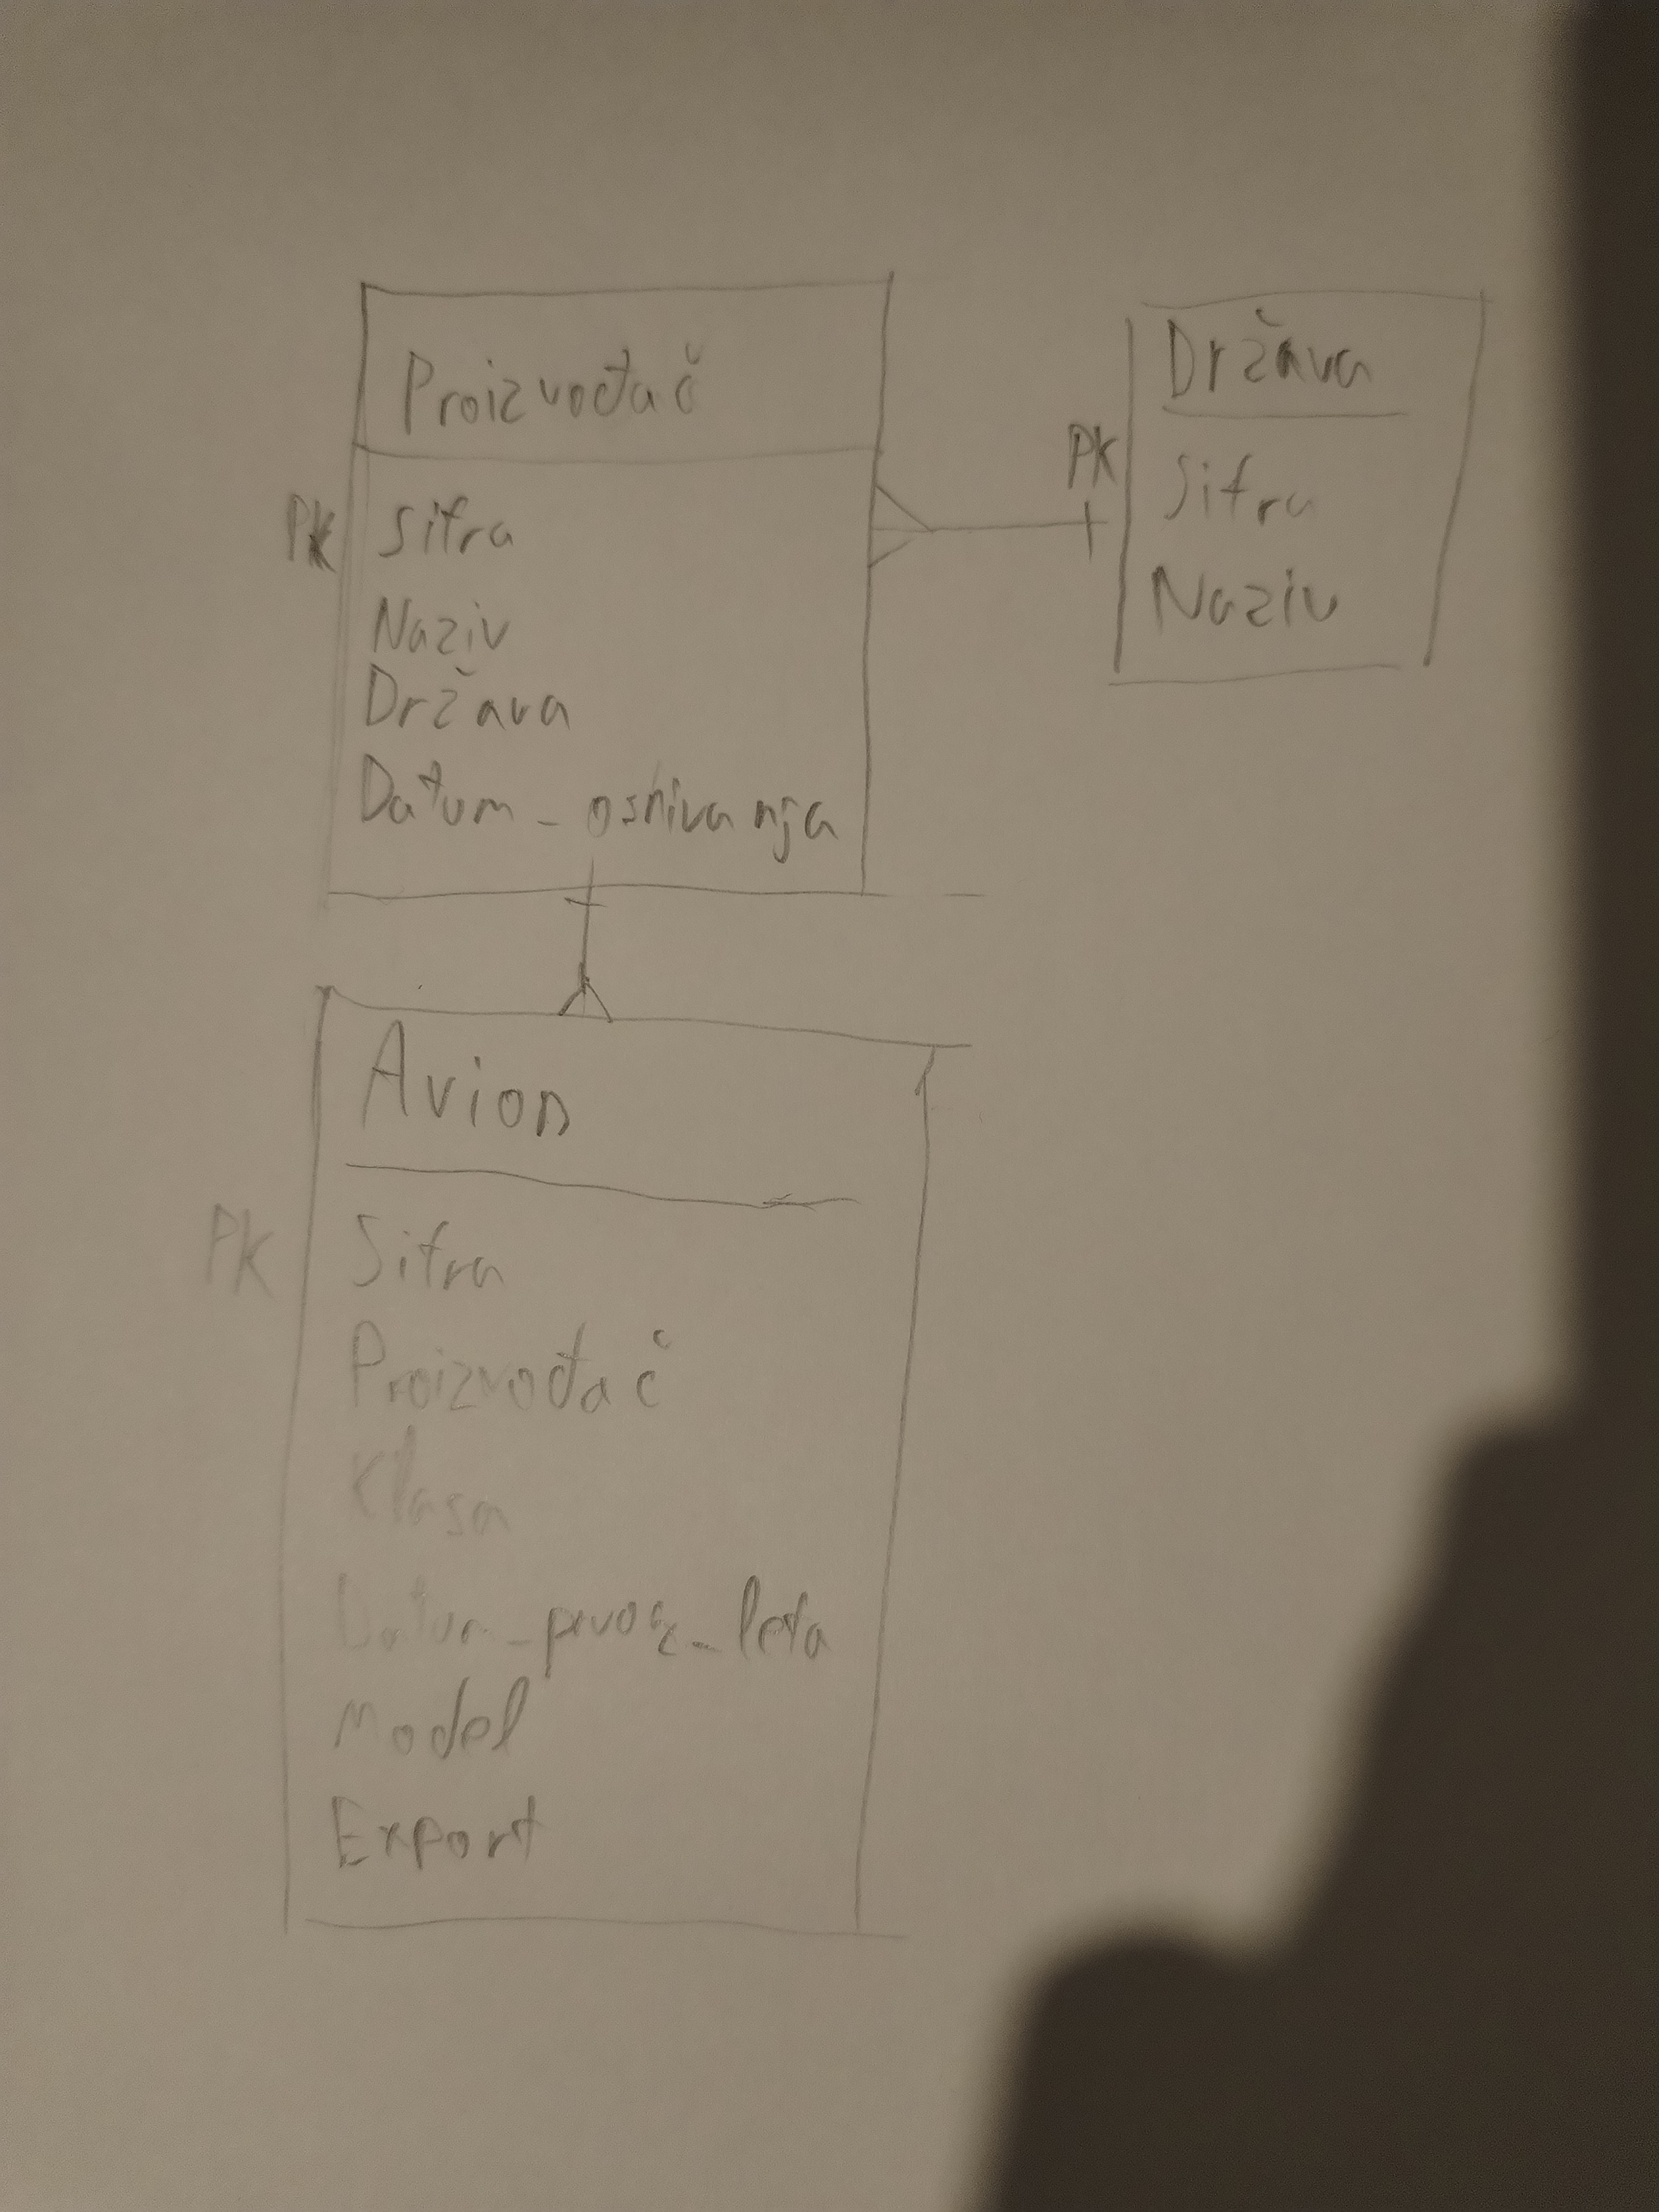 Proizvođač
PK Sifra
Naziv
Država
Datum_osnivanja
Država
PK Sifra
Naziv
Avion
PK Sifra
Proizvođač
Klasa
Datum_prvog_leta
Model
Export